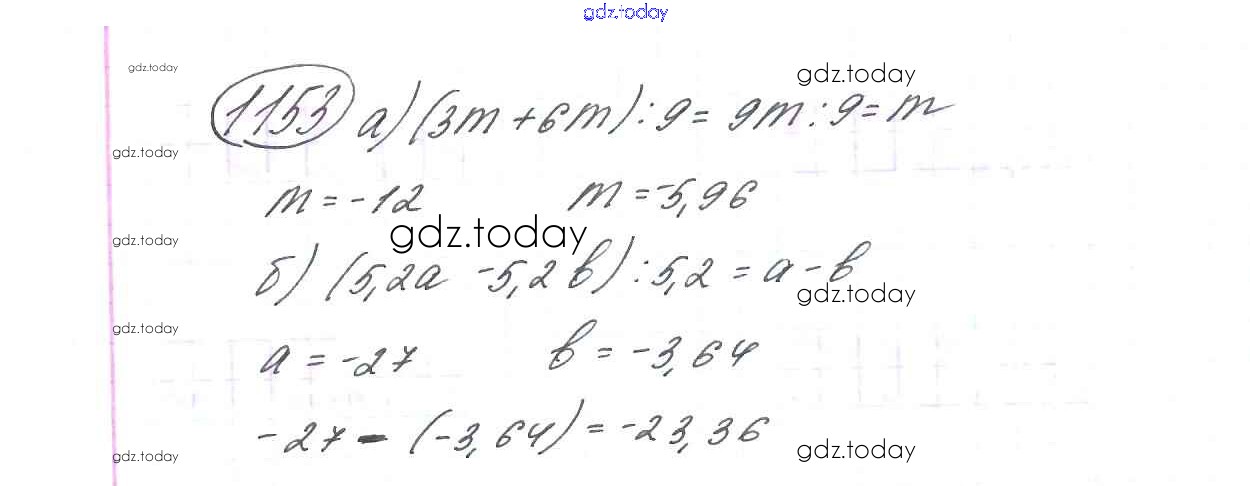 gdz.today
gdz.today
gdz.today
1153 а) (3m + 6m) : 9 = 9m : 9 = m
gdz.today
m = -12 m = -5,96
gdz.today
gdz.today
б) (5,2a - 5,2b) : 5,2 = a - b
gdz.today
gdz.today
a = -27 b = -3,64
-27 - (-3,64) = -23,36
gdz.today
gdz.today